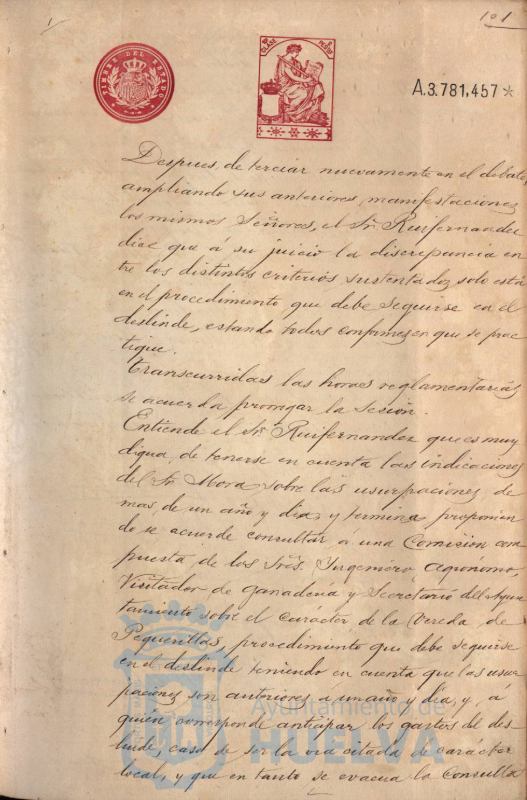 101
TIMBRE DEL ESTADO
CLASE
PESETA
A.3.781,457*
Despues, de terciar nuevamente en el debate,
ampliando sus anteriores, manifestaciones
los mismos Señores, el Sr. Ruifernandez
dice que á su juicio la discrepancia en
tre los distintos criterios sustentados solo está
en el procedimiento que debe seguirse en el
deslinde, estando todos conformes en que se prac
tique.
Transcurridas las horas reglamentarias
se acuerda prorrogar la sesión.
Entiende el Sr. Ruifernandez que es muy
digna de tenerse en cuenta las indicaciones
del Sr. Mora sobre las usurpaciones de
mas de un año y dia, y termina proponien
do se acuerde consultar á una Comisión com
puesta de los Sres. Ingeniero Agronomo,
Visitador de Ganadería y Secretario del Ayun
tamiento sobre el carácter de la Vereda de
Pequerillas, procedimiento que debe seguirse
en el deslinde teniendo en cuenta que las usur
paciones son anteriores a un año y dia, y á
quien corresponde anticipar los gastos del des
linde, caso de ser la via citada de carácter
local, y que en tanto se evacua la Consulta
Ayuntamiento de
HUELVA